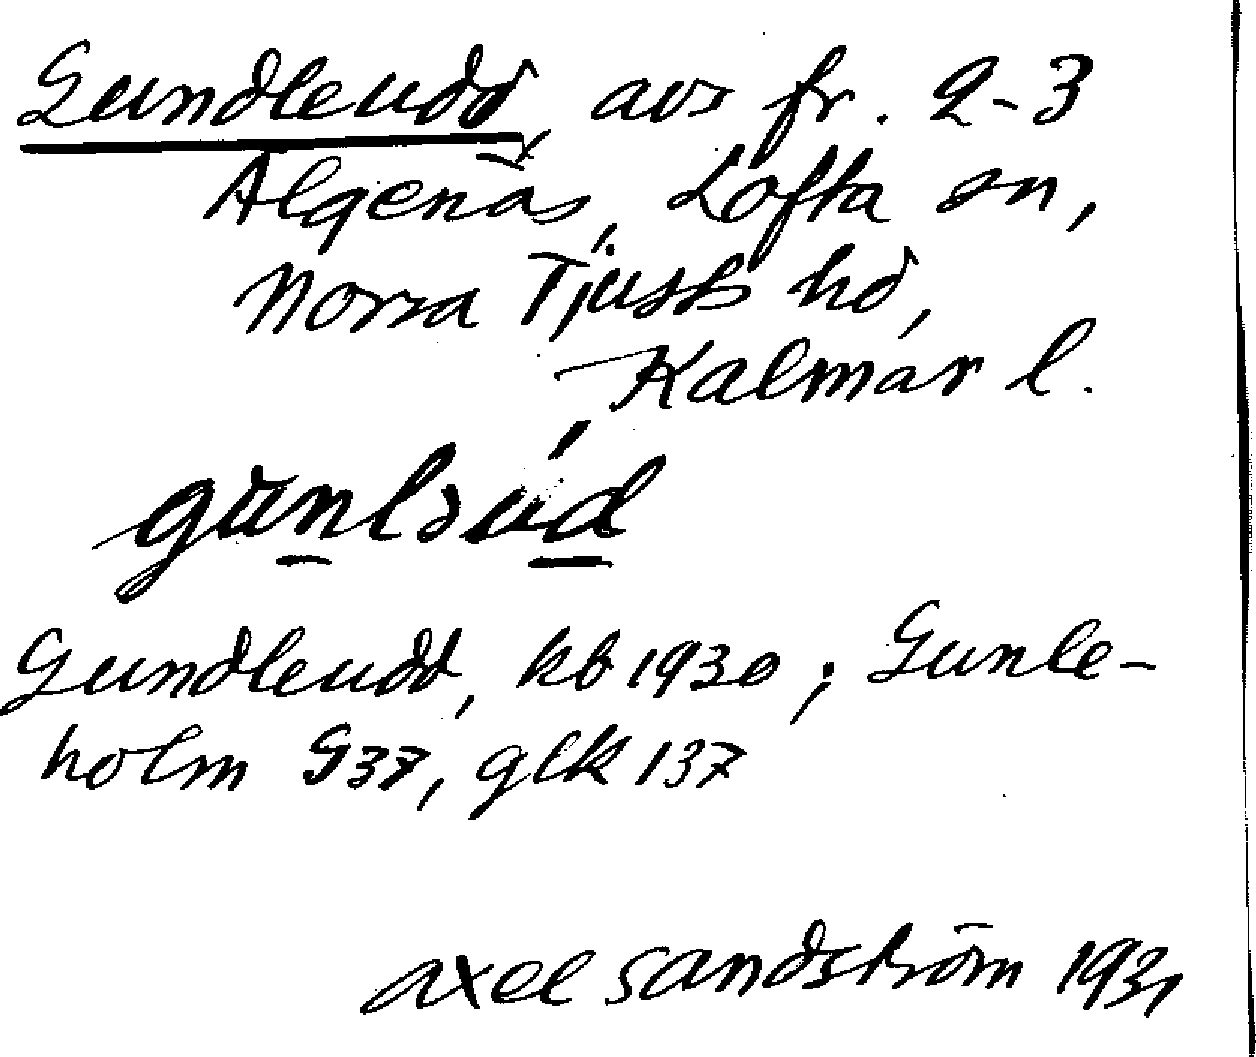 Gundleudd, avs fr. 2-3
Älgenäs, Lofta sn,
Norra Tjusts hd,
Kalmar l.
gùnləúd
Gundleudd, kb 1930; Gunle-
holm G37, glk 137
Axel Sandström 1931